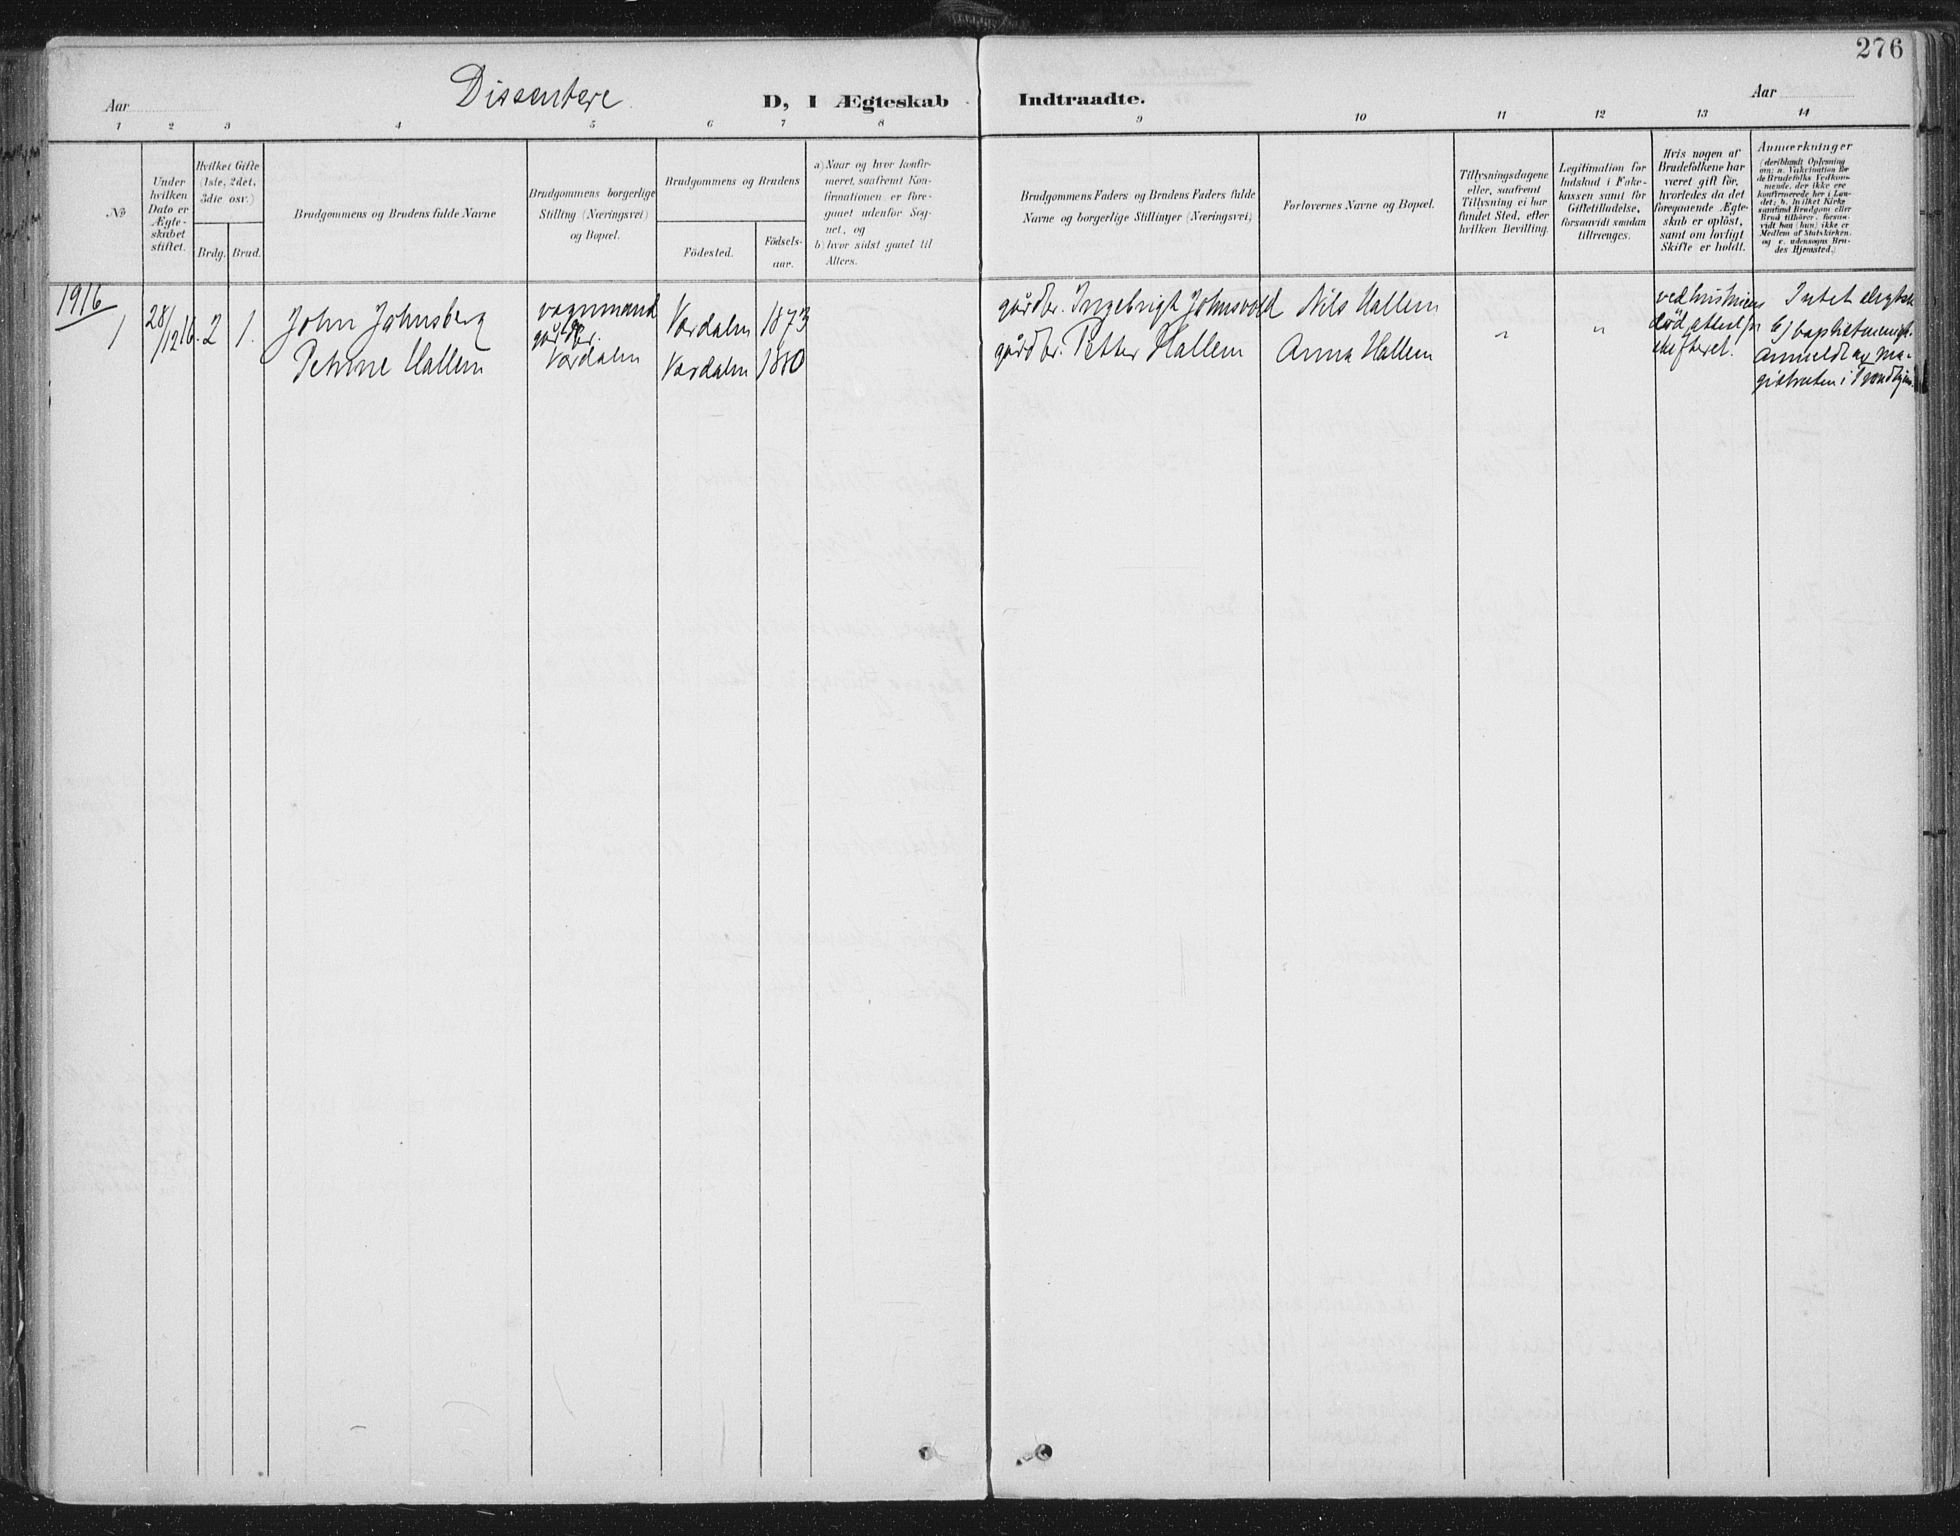 276
Dissentere
Aar
D, I Ægteskab
Indtraadte.
Aar
1 2 3 4 5 6 7 8 9 10 11 12 13 14
No
Under
hvilken
Dato er
Ægte-
skabet
stiftet.
Hvilket Gifte
(1ste, 2det,
3die osv.)
Brdg. Brud.
Brudgommens og Brudens fulde Navne
Brudgommens borgerlige
Stilling (Næringsvei)
og Bopæl.
Brudgommens og Brudens
Födested.
Födsels-
aar.
a) Naar og hvor konfir-
meret, saafremt Kon-
firmationen er fore-
gaaet udenfor Sog-
net, og
b) hvor sidst gaaet til
Alters.
Brudgommens Faders og Brudens Faders fulde
Navne og borgerlige Stillinger (Næringsvei)
Forlovernes Navne og Bopæl.
Tillysningsdagene
eller, saafremt
Tillysning ei har
fundet Sted, efter
hvilken Bevilling.
Legitimation for
Indskud i Enke-
kassen samt for
Giftetilladelse,
forsaavidt saadan
tiltrænges.
Hvis nogen af
Brudefolkene har
været gift för,
hvorledes da det
foregaaende Ægte-
skab er oplöst,
samt om lovligt
Skifte er holdt.
Anmærkninger
(deriblandt Oplysning
om: a. Vakcination for
de Brudefolks Vedkom-
mende, der ikke ere
konfirmerede her i Lan-
det; b. hvilket Kirke-
samfund Brudgom eller
Brud tilhörer, forsaa-
vidt han (hun) ikke er
Medlem af Statskirken,
og c. udensogns Bru-
des Hjemsted.)
1916
1 28/12 16. 2 1.
John Johnsberg
Petrine Hallem
vognmand
gårdbr.
Værdalen
Værdalen 1873
Værdalen 1880
gårdbr. Ingebrigt Johnsvold
gårdbr. Petter Hallem
Nils Hallem
Anna Hallem
"
"
ved hustruens
död, attest for
skiftet.
Intet slegtsk.
Ej baptistmenigh.
Anmeldt av ma-
gistraten i Trondhjem.